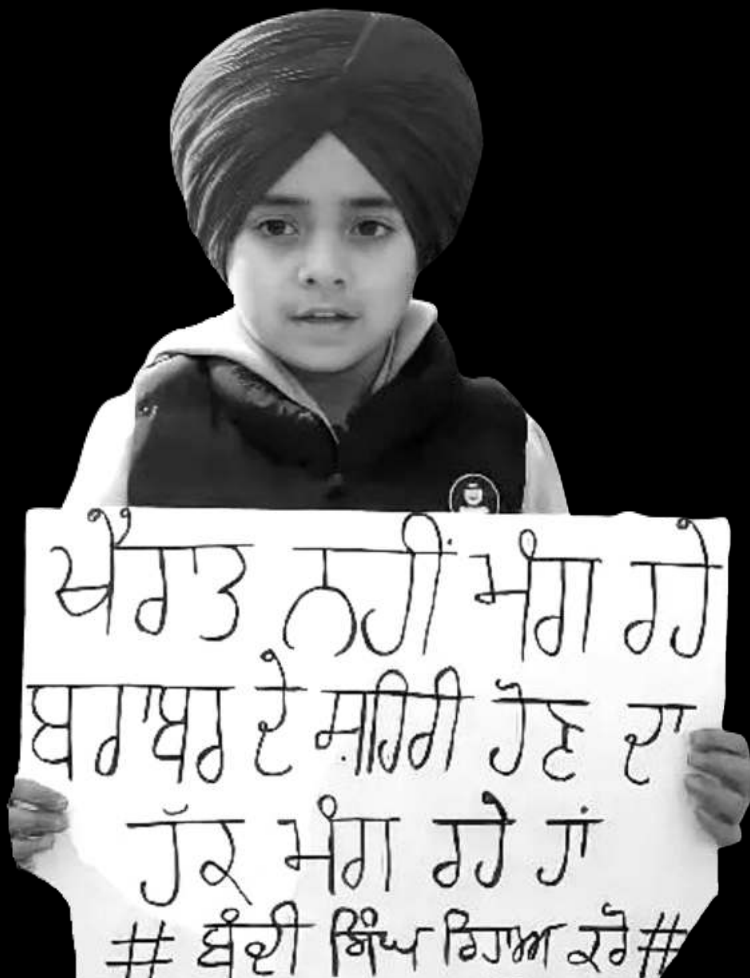 ਖੈਰਾਤ ਨਹੀਂ ਮੰਗ ਰਹੇ
ਬਰਾਬਰ ਦੇ ਸ਼ਹਿਰੀ ਹੋਣ ਦਾ
ਹੱਕ ਮੰਗ ਰਹੇ ਹਾਂ
# ਬੰਦੀ ਸਿੰਘ ਰਿਹਾਅ ਕਰੋ #